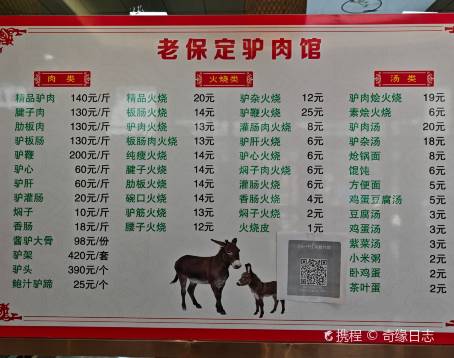 老保定驴肉馆
肉 类
精品驴肉 140元/斤
腱子肉 130元/斤
肋板肉 130元/斤
驴板肠 130元/斤
驴鞭 200元/斤
驴心 60元/斤
驴肝 60元/斤
驴灌肠 20元/斤
焖子 10元/斤
香肠 18元/斤
酱驴大骨 98元/份
驴架 420元/套
驴头 390元/个
鲍汁驴蹄 25元/个
火烧类
精品火烧 20元
板肠火烧 14元
驴肉火烧 13元
板肠肉火烧 13元
纯瘦火烧 14元
腱子火烧 14元
肋板火烧 14元
碗口火烧 14元
驴筋火烧 13元
腰子火烧 12元
驴杂火烧 12元
驴鞭火烧 25元
灌肠肉火烧 8元
驴肝火烧 6元
驴心火烧 6元
焖子肉火烧 9元
灌肠火烧 6元
香肠火烧 4元
焖子火烧 4元
火烧皮 1元
汤 类
驴肉烩火烧 19元
素烩火烧 6元
驴肉汤 20元
驴杂汤 18元
烩锅面 8元
馄饨 6元
方便面 5元
鸡蛋豆腐汤 5元
豆腐汤 3元
鸡蛋汤 3元
紫菜汤 3元
小米粥 2元
卧鸡蛋 2元
茶叶蛋 2元
携程 © 奇缘日志